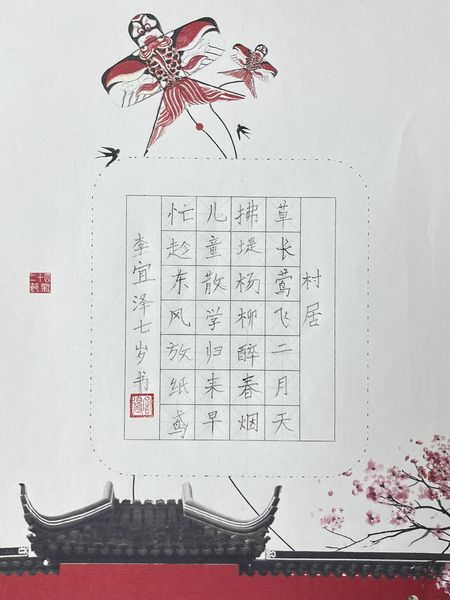 村居
草长莺飞二月天
拂堤杨柳醉春烟
儿童散学归来早
忙趁东风放纸鸢
李宜泽七岁书